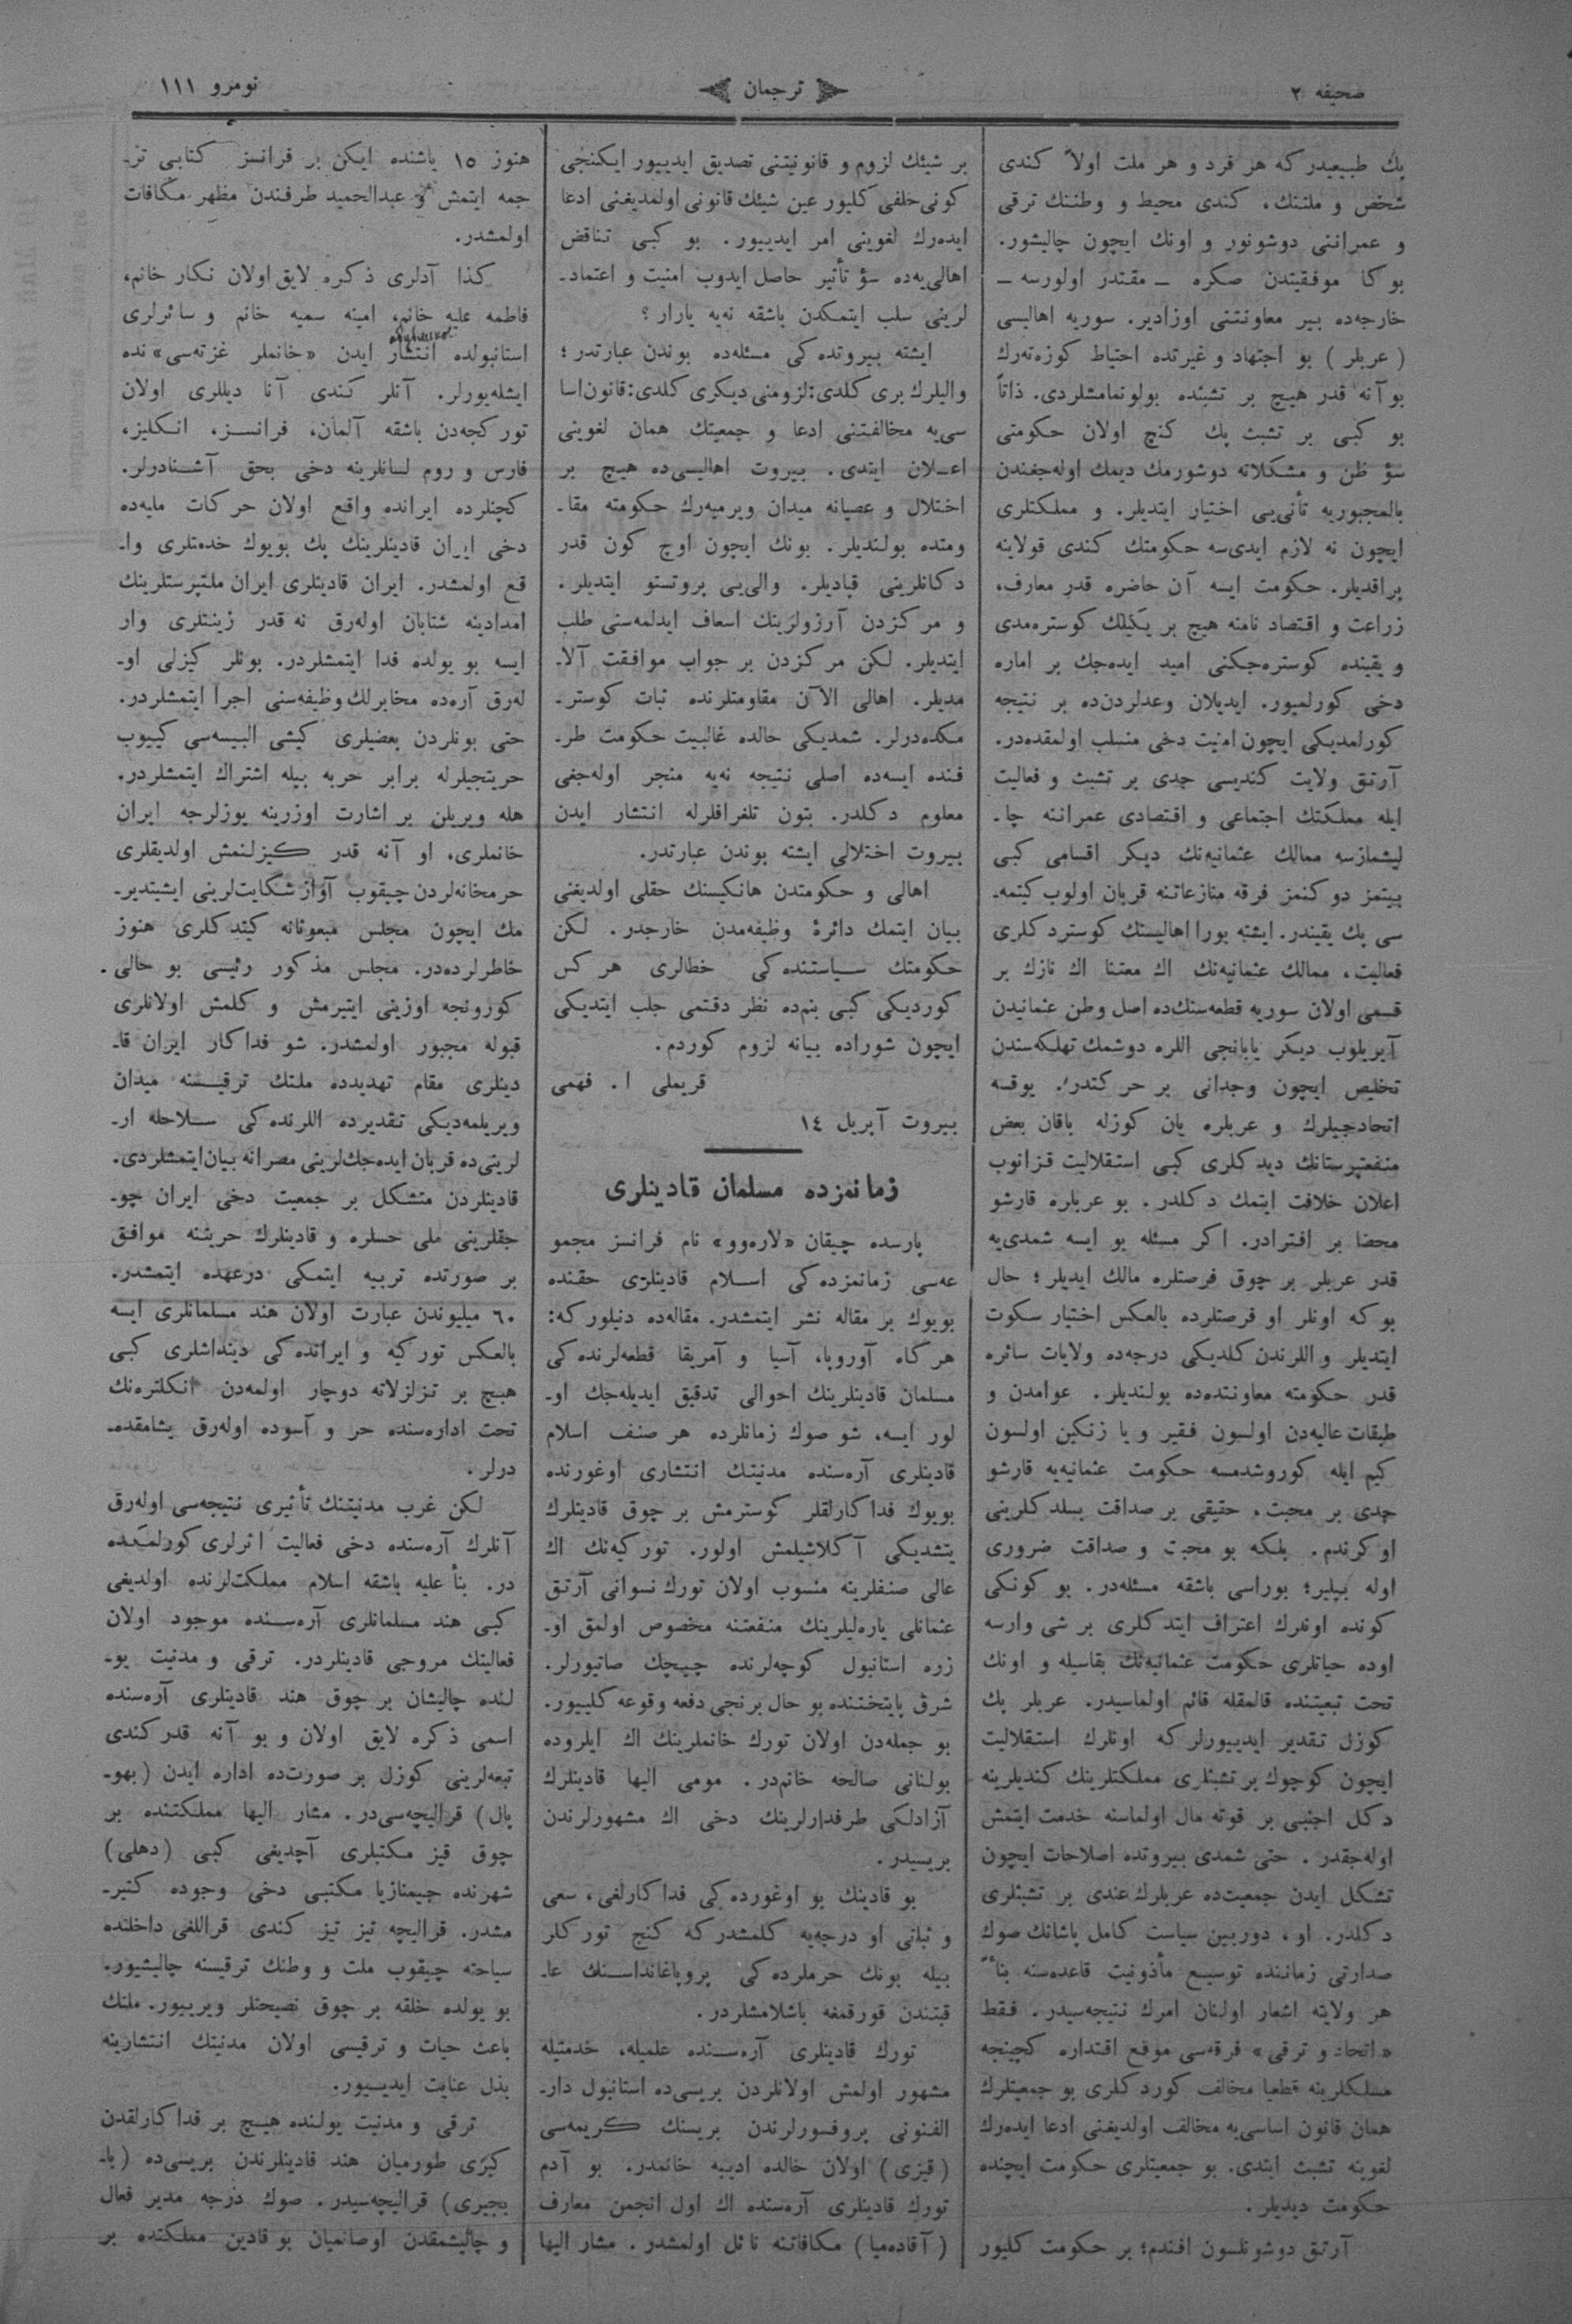 صحيفه ٢
ترجمان
نومرو ١١١
پك طبيعيدر كه هر فرد و هر ملت اولاً كندى
شخص و ملتنك، كندى محيط و وطننك ترقى
و عمراننى دوشونور و اونك ايچون چاليشور.
بوكا موفقيتدن صكره ــ مقتدر اولورسه ــ
خارجه‌ده بير معاونتنى اوزادير. سوريه اهاليسى
(عربلر) بو اجتهاد و غيرتده احتياط كوزه‌ته‌رك
بو آنه قدر هيچ بر تشبثده بولونمامشلردى. ذاتاً
بو كبى بر تشبث پك كنج اولان حكومتى
سؤ ظن و مشكلاته دوشورمك ديمك اوله‌جغندن
بالمجبوريه تأنى‌يى اختيار ايتديلر. و مملكتلرى
ايچون نه لازم ايدى‌سه حكومتك كندى قولاينه
براقديلر. حكومت ايسه آن حاضره قدر معارف،
زراعت و اقتصاد نامنه هيچ بر يكيلك كوستره‌مدى
و يقينده كوستره‌جكنى اميد ايده‌جك بر اماره
دخى كورلميور. ايديلان وعدلردن‌ده بر نتيجه
كورلمديكى ايچون امنيت دخى منسلب اولمقده‌در.
آرتق ولايت كنديسى جدى بر تشبث و فعاليت
ايله مملكتك اجتماعى و اقتصادى عمراننه چا-
ليشمازسه ممالك عثمانيه‌نك ديكر اقسامى كبى
بيتمز دوكنمز فرقه منازعاتنه قربان اولوب كيتمه-
سى پك يقيندر. ايشته بورا اهاليسنك كوستردكلرى
فعاليت، ممالك عثمانيه‌نك اك معتنا اك نازك بر
قسمى اولان سوريه قطعه‌سنك‌ده اصل وطن عثمانيدن
آيريلوب ديكر يابانجى اللره دوشمك تهلكه‌سندن
تخليص ايچون وجدانى بر حركتدر. يوقسه
اتحادجيلرك و عربلره يان كوزله باقان بعض
منفعتپرستانك ديدكلرى كبى استقلاليت قزانوب
اعلان خلافت ايتمك دكلدر. بو عربلره قارشو
محضا بر افترادر. اكر مسئله بو ايسه شمدى‌يه
قدر عربلر بر چوق فرصتلره مالك ايديلر؛ حال
بو كه اونلر او فرصتلرده بالعكس اختيار سكوت
ايتديلر و اللرندن كلديكى درجه‌ده ولايات سائره
قدر حكومته معاونتده‌ده بولنديلر. عوامدن و
طبقات عاليه‌دن اولسون فقير و يا زنكين اولسون
كيم ايله كوروشدمسه حكومت عثمانيه‌يه قارشو
جدى بر محبت، حقيقى بر صداقت بسلدكلرينى
اوكرندم. بلكه بو محبت و صداقت ضرورى
اوله بيلير؛ بوراسى باشقه مسئله‌در. بو كونكى
كونده اونلرك اعتراف ايتدكلرى بر شى وارسه
اوده حياتلرى حكومت عثمانيه‌نك بقاسيله و اونك
تحت تبعيتنده قالمقله قائم اولماسيدر. عربلر پك
كوزل تقدير ايدييورلر كه اونلرك استقلاليت
ايچون كوچوك بر تشبثلرى مملكتلرينك كنديلرينه
دكل اجنبى بر قوته مال اولماسنه خدمت ايتمش
اوله‌جقدر. حتى شمدى بيروتده اصلاحات ايچون
تشكل ايدن جمعيت‌ده عربلرك عندى بر تشبثلرى
دكلدر. او، دوربين سياست كامل پاشانك صوك
صدارتى زماننده توسيع مأذونيت قاعده‌سنه بنأً
هر ولايته اشعار اولنان امرك نتيجه‌سيدر. فقط
«اتحاد و ترقى» فرقه‌سى موقع اقتداره كچينجه
مسلكلرينه قطعيا مخالف كوردكلرى بو جمعيتلرك
همان قانون اساسى‌يه مخالف اولديغنى ادعا ايده‌رك
لغوينه تشبث ايتدى. بو جمعيتلرى حكومت ايچنده
حكومت ديديلر.
آرتق دوشونلسون افندم؛ بر حكومت كليور
بر شيئك لزوم و قانونيتنى تصديق ايدييور ايكنجى
كونى خلفى كليور عين شيئك قانونى اولمديغنى ادعا
ايده‌رك لغوينى امر ايدييور. بو كبى تناقض
اهالى‌يه‌ده سؤ تأثير حاصل ايدوب امنيت و اعتماد-
لرينى سلب ايتمكدن باشقه نه‌يه يارار؟
ايشته بيروتده‌كى مسئله‌ده بوندن عبارتدر؛
واليلرك برى كلدى: لزومنى ديكرى كلدى: قانون اسا
سى‌يه مخالفتنى ادعا و جمعيتك همان لغوينى
اعلان ايتدى. بيروت اهاليسى‌ده هيچ بر
اختلال و عصيانه ميدان ويرميه‌رك حكومته مقا-
ومتده بولنديلر. بونك ايچون اوچ كون قدر
دكانلرينى قپاديلر. والى‌يى پروتستو ايتديلر.
و مركزدن آرزولرينك اسعاف ايدلمه‌سنى طلب
ايتديلر. لكن مركزدن بر جواب موافقت آلا-
مديلر. اهالى الآن مقاومتلرنده ثبات كوستر-
مكده‌درلر. شمديكى حالده غالبيت حكومت طر-
فنده ايسه‌ده اصلى نتيجه نه‌يه منجر اوله‌جغى
معلوم دكلدر. بتون تلغرافلرله انتشار ايدن
بيروت اختلالى ايشته بوندن عبارتدر.
اهالى و حكومتدن هانكيسنك حقلى اولديغنى
بيان ايتمك دائرهٔ وظيفه‌مدن خارجدر. لكن
حكومتك سياستنده‌كى خطالرى هركس
كورديكى كبى بنم‌ده نظر دقتمى جلب ايتديكى
ايچون شوراده بيانه لزوم كوردم.
قريملى ا. فهمى
بيروت آپريل ١٤
زمانمزده مسلمان قادينلرى
پارسده چيقان «لاره‌وو» نام فرانسز مجمو
عه‌سى زمانمزده‌كى اسلام قادينلرى حقنده
بويوك بر مقاله نشر ايتمشدر. مقاله‌ده دنيلور كه:
هركاه آوروپا، آسيا و آمريقا قطعه‌لرنده‌كى
مسلمان قادينلرينك احوالى تدقيق ايديله‌جك او-
لور ايسه، شو صوك زمانلرده هر صنف اسلام
قادينلرى آره‌سنده مدنيتك انتشارى اوغورنده
بويوك فداكارلقلر كوسترمش بر چوق قادينلرك
يتشديكى آكلاشيلمش اولور. توركيه‌نك اك
عالى صنفلرينه منسوب اولان تورك نسوانى آرتق
عثمانلى ياره‌ليلرينك منفعتنه مخصوص اولمق او-
زره استانبول كوچه‌لرنده چيچك صاتيورلر.
شرق پايتختنده بو حال برنجى دفعه وقوعه كلييور.
بو جمله‌دن اولان تورك خانملرينك اك ايلروده
بولنانى صالحه خانم‌در. مومى اليها قادينلرك
آزادلكى طرفدارلرينك دخى اك مشهورلرندن
بريسيدر.
بو قادينك بو اوغورده‌كى فداكارلغى، سعى
و ثباتى او درجه‌يه كلمشدر كه كنج توركلر
بيله بونك حرملرده‌كى پروپاغانداسنك عا-
قبتندن قورقمغه باشلامشلردر.
تورك قادينلرى آره‌سنده علميله، خدمتيله
مشهور اولمش اولانلردن بريسى‌ده استانبول دار-
الفنونى پروفسورلرندن بريسنك كريمه‌سى
(قيزى) اولان خالده اديبه خانمدر. بو آدم
تورك قادينلرى آره‌سنده اك اول انجمن معارف
(آقاده‌ميا) مكافاتنه نائل اولمشدر. مشار اليها
هنوز ١٥ ياشنده ايكن بر فرانسز كتابى تر-
جمه ايتمش و عبدالحميد طرفندن مظهر مكافات
اولمشدر.
كذا آدلرى ذكره لايق اولان نكار خانم،
فاطمه عليه خانم، امينه سميه خانم و سائرلرى
استانبولده انتشار ايدن «خانملر غزته‌سى» نده
ايشله‌يورلر. آنلر كندى آنا ديللرى اولان
توركجه‌دن باشقه آلمان، فرانسز، انكليز،
فارس و روم لسانلرينه دخى بحق آشنادرلر.
كچنلرده ايرانده واقع اولان حركات مليه‌ده
دخى ايران قادينلرينك پك بويوك خدمتلرى وا-
قع اولمشدر. ايران قادينلرى ايران ملتپرستلرينك
امدادينه شتابان اوله‌رق نه قدر زينتلرى وار
ايسه بو يولده فدا ايتمشلردر. بونلر كيزلى او-
له‌رق آره‌ده مخابرلك وظيفه‌سنى اجرا ايتمشلردر.
حتى بونلردن بعضيلرى كيشى البيسه‌سى كييوب
حريتجيلرله برابر حربه بيله اشتراك ايتمشلردر.
هله ويريلن بر اشارت اوزرينه يوزلرجه ايران
خانملرى، او آنه قدر كيزلنمش اولديقلرى
حرمخانه‌لردن چيقوب آواز شكايت‌لرينى ايشيتدير-
مك ايچون مجلس مبعوثانه كيتدكلرى هنوز
خاطرلرده‌در. مجلس مذكور رئيسى بو حالى
كورونجه اوزينى ايتيرمش و كلمش اولانلرى
قبوله مجبور اولمشدر. شو فداكار ايران قا-
دينلرى مقام تهديدده ملتك ترقيسنه ميدان
ويريلمه‌ديكى تقديرده اللرنده‌كى سلاحله ار-
لرينى‌ده قربان ايده‌جك‌لرينى مصرانه بيان ايتمشلردى.
قادينلردن متشكل بر جمعيت دخى ايران چو-
جقلرينى ملى حسلره و قادينلرك حريتنه موافق
بر صورتده تربيه ايتمكى درعهده ايتمشدر.
٦٠ ميليوندن عبارت اولان هند مسلمانلرى ايسه
بالعكس توركيه و ايرانده‌كى دينداشلرى كبى
هيچ بر تزلزلاته دوچار اولمه‌دن انكلتره‌نك
تحت اداره‌سنده حر و آسوده اوله‌رق يشامقده-
درلر.
لكن غرب مدنيتنك تأثيرى نتيجه‌سى اوله‌رق
آنلرك آره‌سنده دخى فعاليت اثرلرى كورلمكده
در. بنأ عليه باشقه اسلام مملكت‌لرنده اولديغى
كبى هند مسلمانلرى آره‌سنده موجود اولان
فعاليتك مروجى قادينلردر. ترقى و مدنيت يو-
لنده چاليشان بر چوق هند قادينلرى آره‌سنده
اسمى ذكره لايق اولان و بو آنه قدر كندى
تبعه‌لرينى كوزل بر صورت‌ده اداره ايدن (بهو-
پال) قراليچه‌سى‌در. مشار اليها مملكتنده بر
چوق قيز مكتبلرى آچديغى كبى (دهلى)
شهرنده جيمنازيا مكتبى دخى وجوده كتير-
مشدر. قراليچه تيز تيز كندى قراللغى داخلنده
سياحته چيقوب ملت و وطنك ترقيسنه چاليشيور.
بو يولده خلقه بر چوق نصيحتلر ويرييور. ملتك
باعث حيات و ترقيسى اولان مدنيتك انتشارينه
بذل عنايت ايدييور.
ترقى و مدنيت يولنده هيچ بر فداكارلقدن
كيرى طورميان هند قادينلرندن بريسى‌ده (با-
بجيرى) قراليچه‌سيدر. صوك درجه مدير فعال
و چاليشمقدن اوصانميان بو قادين مملكتده بر